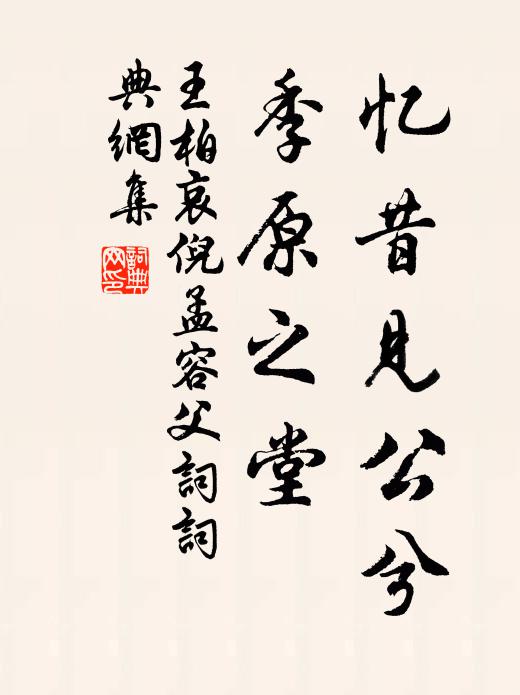 忆昔见公兮
季原之堂
王柏哀倪孟容父詞詞
典網集
詞典网印